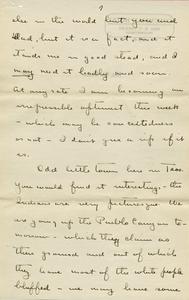 else in the world but you and
Dad, but it is a fact, and it
stands me in good stead, and I
may need it badly and soon.
At any rate I am becoming an
irrepressible optimist this week
- which may be contentedness
or not - I don't give a if it
is.
Odd little town here in Taos.
You would find it interesting. The
Indians are very picturesque. We
are going up the Pueblo Canyon to-
morrow - which they claim as
their ground and out of which
they have most of the white people
bluffed - we may have some